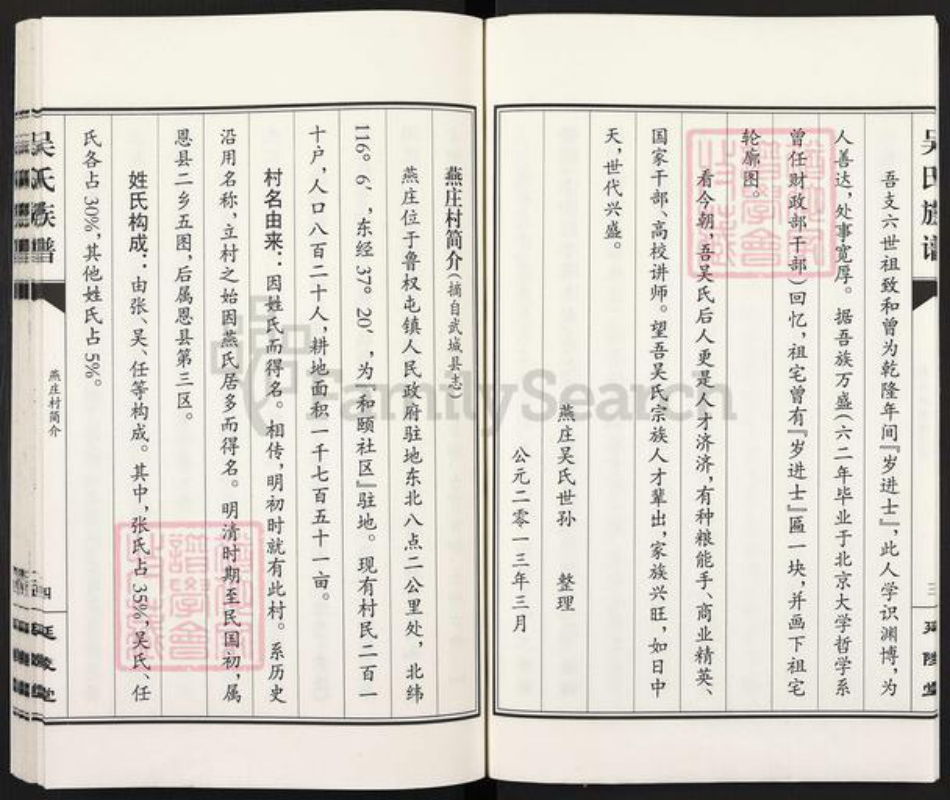 吴氏族谱
吾支六世祖致和曾为乾隆年间『岁进士』，此人学识渊博，为
人善达，处事宽厚。据吾族万盛（六二年毕业于北京大学哲学系
曾任财政部干部）回忆，祖宅曾有『岁进士』匾一块，并画下祖宅
轮廓图。
看今朝，吾吴氏后人更是人才济济，有种粮能手、商业精英、
国家干部、高校讲师。望吾吴氏宗族人才辈出，家族兴旺，如日中
天，世代兴盛。
燕庄吴氏世孙 整理
公元二零一三年三月
燕庄村简介（摘自武城县志）
燕庄位于鲁权屯镇人民政府驻地东北八点二公里处，北纬
116°6′，东经37°20′，为『和颐社区』驻地。现有村民二百一
十户，人口八百二十人，耕地面积一千七百五十一亩。
村名由来：因姓氏而得名。相传，明初时就有此村。系历史
沿用名称，立村之始因燕氏居多而得名。明清时期至民国初，属
恩县二乡五图，后属恩县第三区。
姓氏构成：由张、吴、任等构成。其中，张氏占35%，吴氏、任
氏各占30%，其他姓氏占5%。
吴氏族谱
燕庄村简介
四
延陵堂
FamilySearch